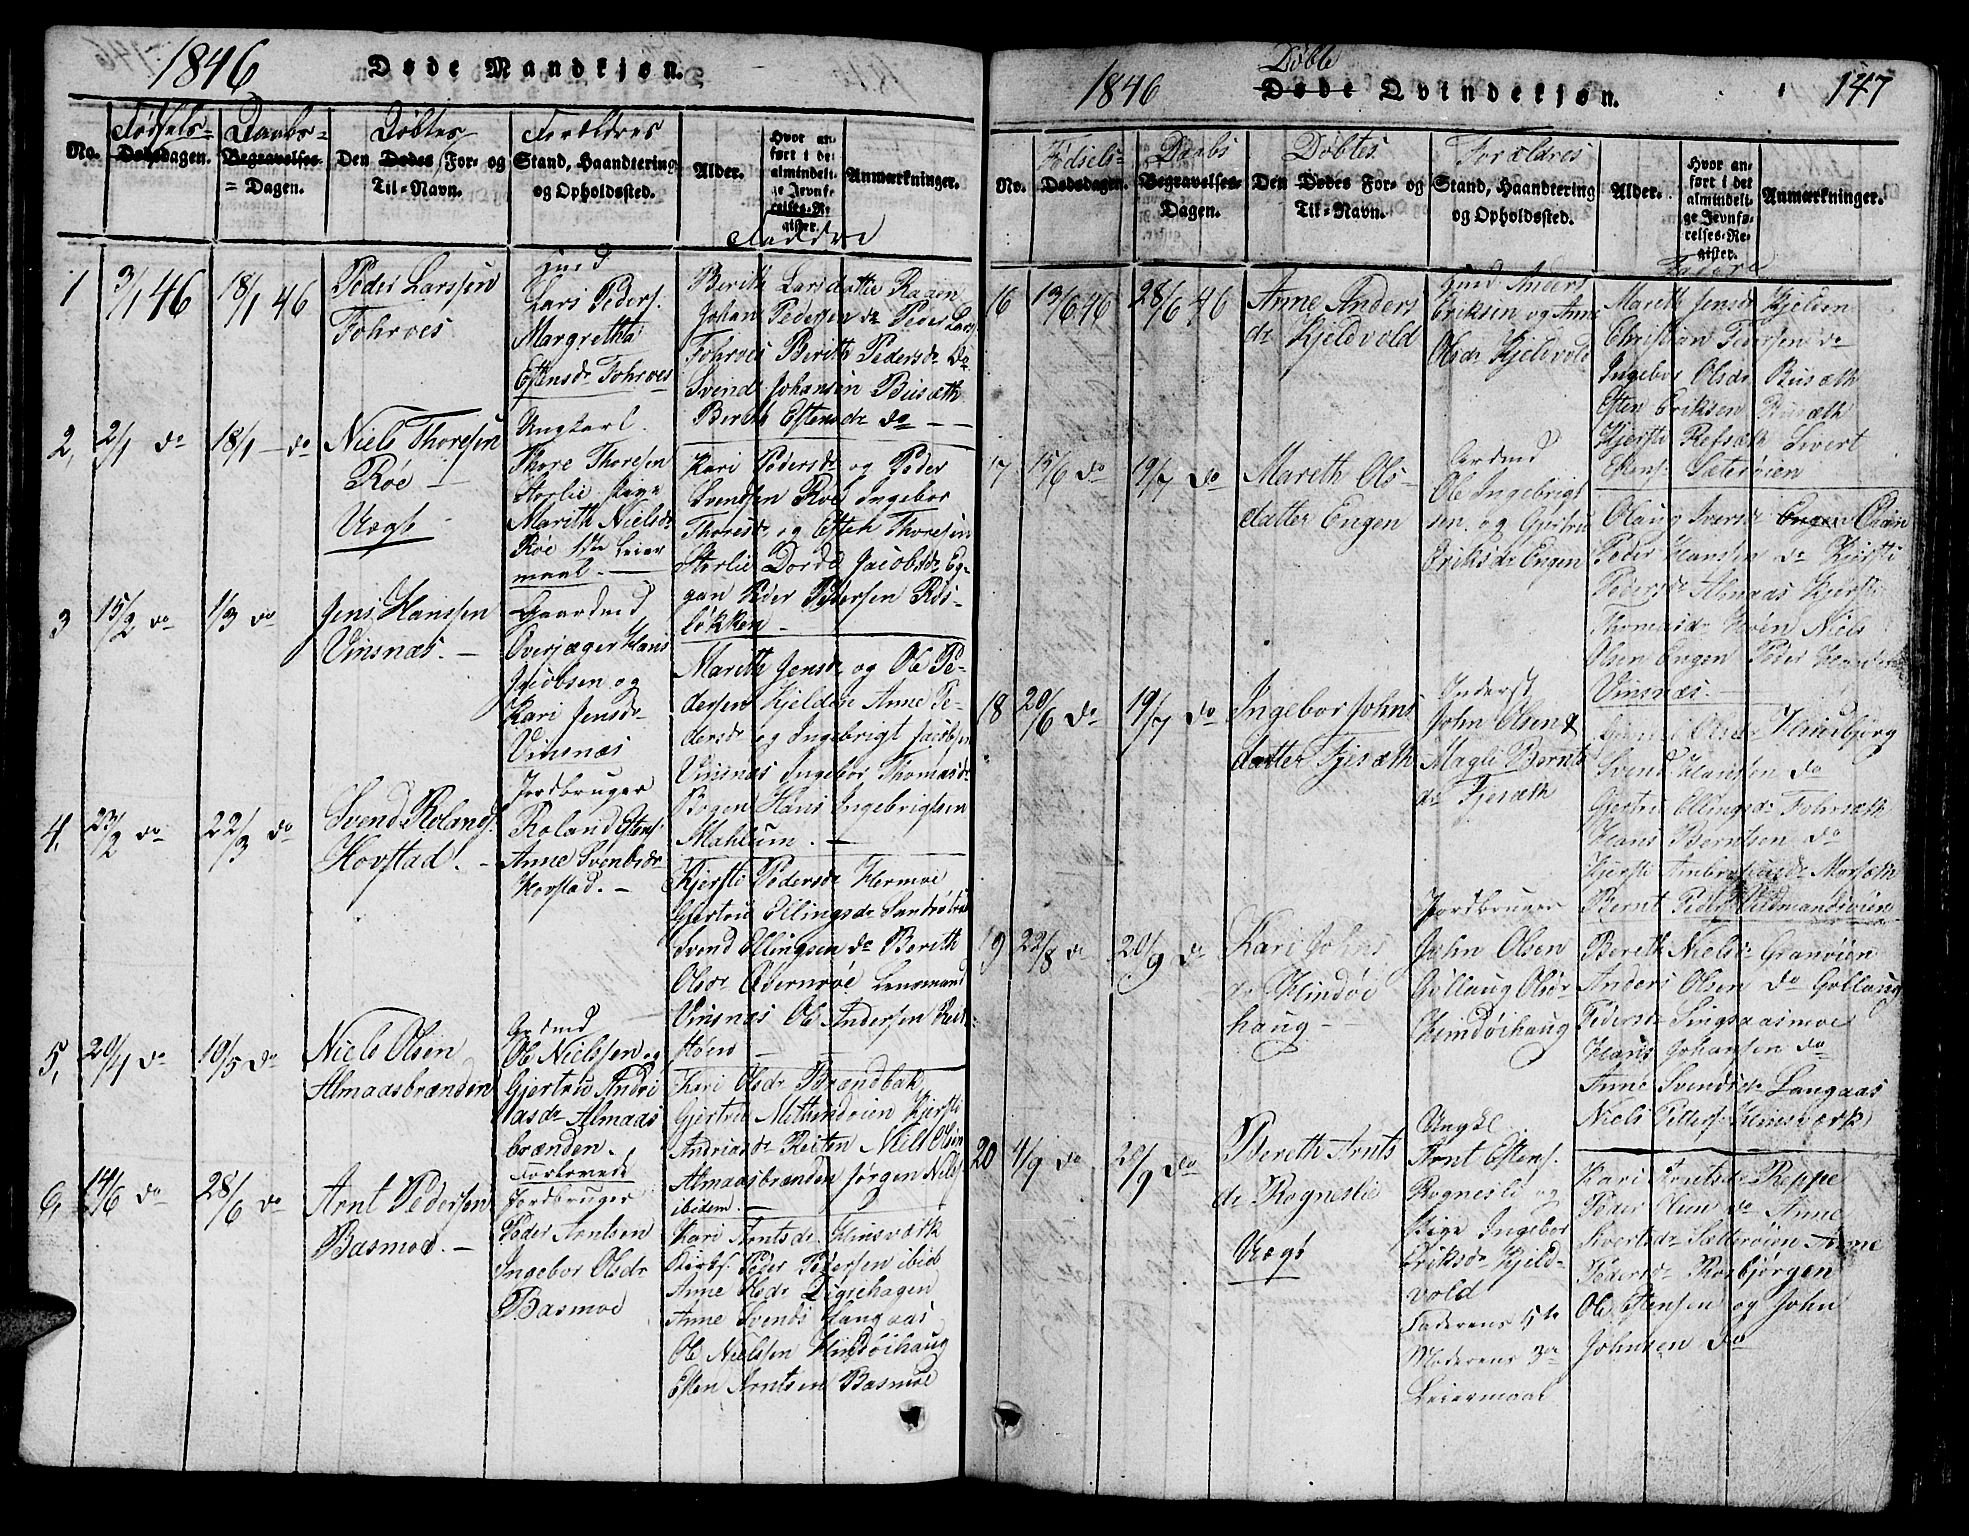 1846
Døde Mandkjøn.
Fødsels-
Daabs-
Døbtes
Forældres
No.
Dødsdagen.
Begravelses-
= Dagen.
Den Dødes For- og
Til-Navn.
Stand, Haandtering
og Opholdssted.
Alder.
Hvor an-
ført i det
almindeli-
ge Jevnfø-
relses-Re-
gister.
Anmærkninger.
Faddre
1
3/1 46
18/1 46
Peder Larssen
Fohrves
Lars Peders.
Margretha
Estensdr Fohrves
Berith Larsdatter Ragen
Johan Pedersen do Peder Lars.
Fohrves Berith Pedersdr do
Svend Johansen Busæth
Berith Estensdr do
2,
2/1 do
18/1 do
Niels Thoresen
Røe
Uægte
Ungkarl
Thore Thoresen
Storlie Pige
Marith Nielsdr
Røe 1ste Leier
maal.
Kari Pedersdr og Peder
Svendsen Roe Ingebor
Thoresdr og Esten Thoresen
Storlie Dordi Jacobsdr Eg-
gan Peder Pedersen Røs-
løkken
3
15/2 do
1/3 do
Jens Hanssen
Vinsnæs.
Gaardmd
Overjæger Hans
Jacobsen og
Kari Jensdr
Vinsnæs
Marith Jensdr og Ole Pe-
dersen Kjelden Anne Pe-
dersdr og Ingebrigt Jacobsen
Vinsnæs Ingebor Thomasdr
Bogen Hans Ingebrigtsen
Mahlum.
4,
23/2 do
22/3 do
Svend Rolands.
Hovstad.
Jordbruger
Roland Estens.
Anne Svendsdr
Hovstad.
Kjersti Pedersdr Hermoe
Gjertru Ellingsdr
Svend Ellingsen do Berith
Olsdr Lensmand
Vinsnæs Ole Andersen
støen
5,
20/4 do
10/5 do
Niels Olsen
Almaasbrænden
Grdmd
Ole Nielssen og
Gjertru Andri
asdr Almaas
brænden.
Kari Olsdr Brændbak
Gjertru Kjersti
Andriasdr Reiten Niels Olsen
Almaasbrænden Jørgen Niels.
ibidem.
6,
14/6 do
28/6 do
Arnt Pedersen
Basmoe.
Forlovede
Jordbruger
Peder Arntsen
Ingebor Olsdr
Basmoe
Kari Arntsdr Hinsværk
Kirks. Peder Pedersen ibid
Anne Olsdr Digrehagen
Anne Svends Langaas
Ole Nielssen Hindøihaug
Esten Arntsen Basmoe
1846
Døbte
Døde Qvindekjøn.
147
Fødsels-
Daabs
Døbtes
Forældres
No.
Dødsdagen.
Begravelses-
Dagen.
Den Dødes For- og
Til-Navn.
Stand, Haandtering
og Opholdssted.
Alder.
Hvor an-
ført i det
almindeli-
ge Jevnfø-
relses-Re-
gister.
Anmærkninger.
Faddre
16
13/6 46
28/6 46
Anne Anders
dr Kjeldvold
Anders
Eriksen og Anne
Olsdr Kjeldvold
Mareth Jensdr Kjelden
Christian Pedersen do
Ingebor Olsdr Busæth
Esten Eriksen Busæth
Kjersti Refsæth Sivert
Sæterøien
17
15/6 do
19/7 do
Mareth Ols-
datter Engen
Grdmd
Ole Ingebrigt
sen og Gjertru
Eriksdr Engen
Olaug Iversdr Engen
Peder Hansen do Kjersti
Pedersdr Almaas Kjersti
Thomasdr Høen Niels
Olsen Engen Peder
Vinsnæs.
18
20/6 do
19/7 do
Ingebor Johns
datter Fjesæth
Inderst
John Olsen &
Magli Bernts
dr Fjesæth
Olsdr Haukbjørg
Svend Hansen do
Gjertru Ellingsdr Fohrsæth
Hans Berntsen do
Kjersti Morsæth
Bernt Peders
19
22/8 do
20/9 do
Kari Johns
dr Hindøi
haug
Jordbruger
John Olsen
Gollaug Olsdr
Hindøihaug
Bereth Nielsdr Granøien
Anders Olsen do Gollaug
Pedersdr Singsaasmoe
Hans Johansen do
Anne Svendsdr Langaas
Niels Peders. Hinsværk
20
4/9 do
20/9 do
Bereth Arnts
dr Rogneslie
Uægte
Ungkl.
Arnt Estens.
Rognesli og
Pige Ingebor
Eriksdr Kjeld-
vold
Faderens 5te
Moderens 3die
Leiermaal
Kari Arntsdr Reppe
Peder do Anne
Sivertsdr Sætterøien Anne
Pedersdr Thorbjørgen
Ole Estensen og John
Johnsen do